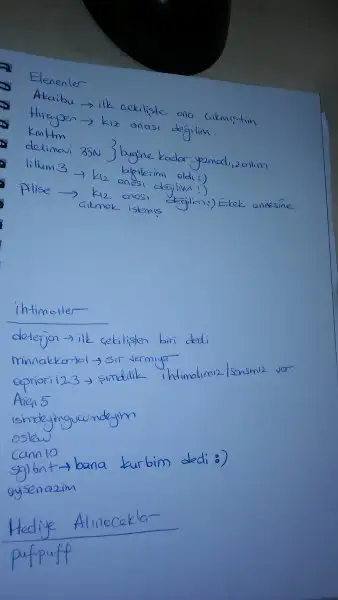 Elenenler
Akaibu → ilk çekilişte ona çıkmıştım
Hireyzen → kız anası değilim
kmhm
delimavi 35N } bugüne kadar yazmadı,
bilgilerimi aldı:)
lillum3 → kız anası değilim:)
Pilise → kız anası değilim:) Erkek annesine
çıkmak istemiş
ihtimaller
deterjan → ilk çekilişten biri dedi
minnakkartal → sır vermiyor
apriori123 → şimdilik ihtimalimiz/şansımız var
Aren5
isimdeyimgucundeyim
oslew
cann10
sglbnt → bana kurbim dedi :)
aysenazim
Hediye Alınacaklar
pufpuff